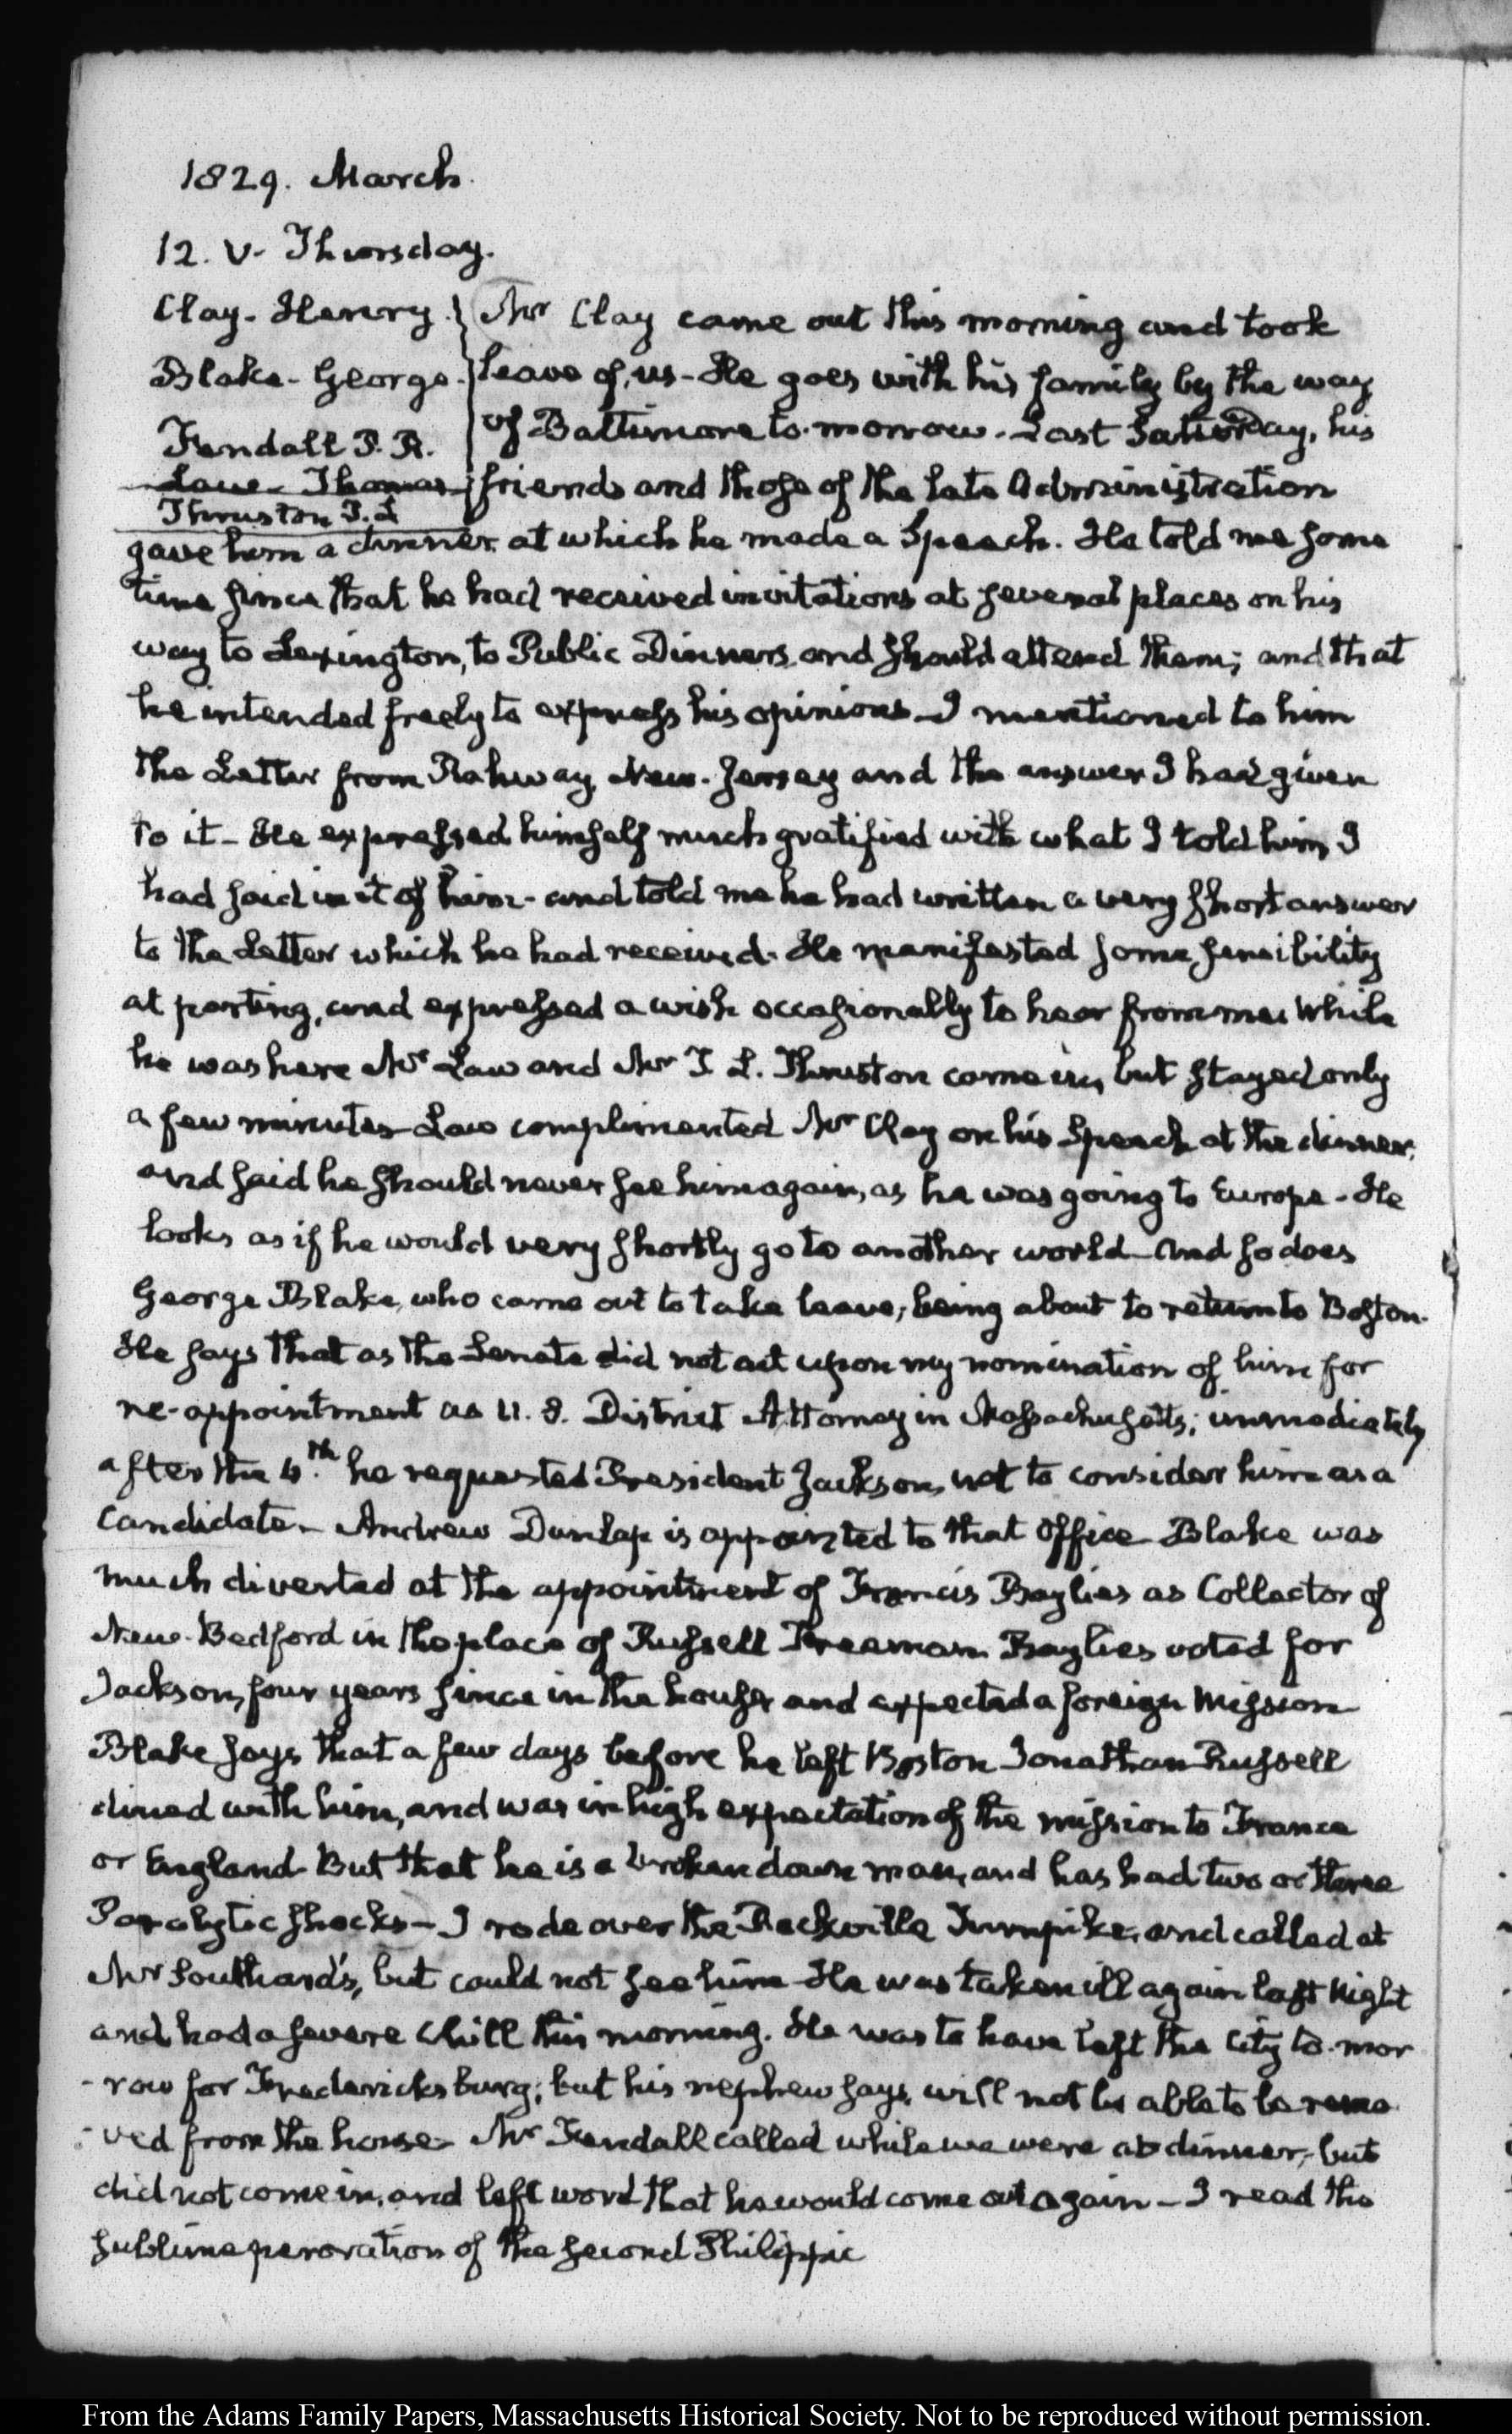 1829. March.
12. V. Thursday.
Clay. Henry.
Blake. George.
Fendall P. R.
Law. Thomas
Thruston T. L
Mr Clay came out this morning and took
leave of us — He goes with his family by the way
of Baltimore to-morrow. Last Saturday, his
friends and those of the late Administration
gave him a dinner at which he made a Speech. He told me some
time since that he had received invitations at several places on his
way to Lexington, to Public Dinners, and should attend them; and that
he intended freely to express his opinions — I mentioned to him
the Letter from Rahway, New-Jersey and the answer I had given
to it — He expressed himself much gratified with what I told him, I
had said in it of him — and told me he had written a very short answer
to the Letter which he had received. He manifested some sensibility
at parting, and expressed a wish occasionally to hear from me. While
he was here Mr Law and Mr T. L. Thruston came in, but stayed only
a few minutes — Law complimented Mr Clay on his Speech at the dinner,
and said he should never see him again, as he was going to Europe — He
looks as if he would very shortly go to another world — And so does
George Blake, who came out to take leave, being about to return to Boston.
He says that as the Senate did not act upon my nomination of him for
re-appointment as U. S. District Attorney in Massachusetts; immediately
after the 4.th he requested President Jackson, not to consider him as a
Candidate — Andrew Dunlap is appointed to that Office — Blake was
much diverted at the appointment of Francis Baylies as Collector of
New-Bedford in the place of Russell Freeman. Baylies voted for
Jackson, four years since in the house, and expected a foreign Mission
Blake says that a few days before he left Boston Jonathan Russell
dined with him, and was in high expectation of the mission to France
or England — But that he is a broken down man, and has had two or three
Paralytic shocks — I rode over the Rockville Turnpike, and called at
Mr Southard's, but could not see him — He was taken ill again last Night
and had a severe Chill this morning. He was to have left the City to-mor
-row for Fredericksburg; but his nephew says, will not be able to be remo
-ved from the house — Mr Fendall called while we were at dinner, but
did not come in, and left word that he would come out again — I read the
sublime peroration of the second Philippic
From the Adams Family Papers, Massachusetts Historical Society. Not to be reproduced without permission.